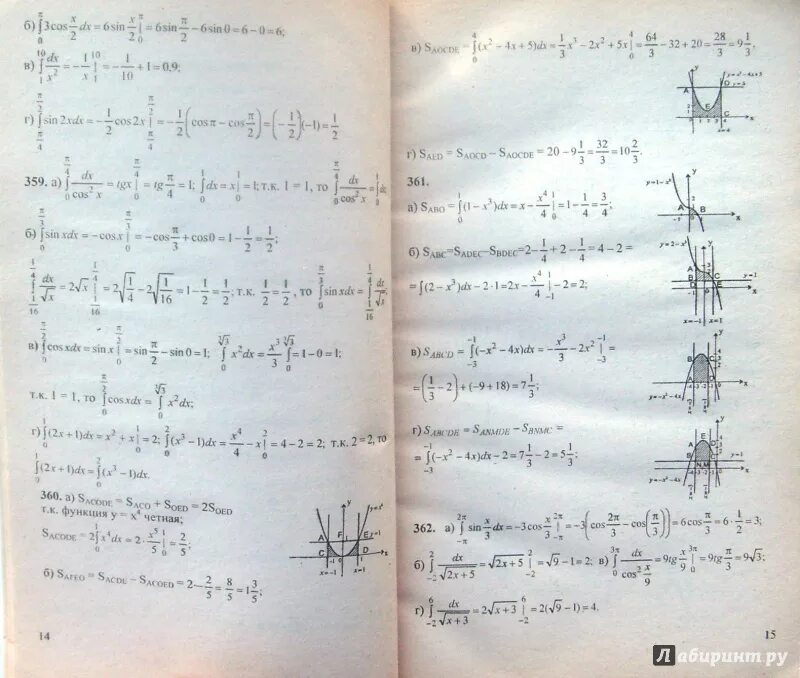 б) ∫₀^π 3cos x/2 dx = 6sin x/2 |₀^π = 6sin π/2 − 6sin0 = 6−0 = 6;
в) ∫₁¹⁰ dx/x² = −1/x |₁¹⁰ = −1/10 + 1 = 0,9;
г) ∫_{π/4}^{π/2} sin2xdx = −1/2 cos2x |_{π/4}^{π/2} = −1/2 (cosπ − cos π/2) = (−1/2)(−1) = 1/2
359. а) ∫₀^{π/4} dx/cos²x = tgx |₀^{π/4} = tg π/4 = 1; ∫₀¹ dx = x |₀¹ = 1; т.к. 1 = 1, то ∫₀^{π/4} dx/cos²x = ∫₀¹ dx
б) ∫₀^{π/3} sin xdx = −cosx |₀^{π/3} = −cos π/3 + cos0 = 1 − 1/2 = 1/2;
∫_{1/16}^{1/4} dx/√x = 2√x |_{1/16}^{1/4} = 2√(1/4) − 2√(1/16) = 1 − 1/2 = 1/2; т.к. 1/2 = 1/2, то ∫₀^{π/3} sin xdx = ∫_{1/16}^{1/4} dx/√x
в) ∫₀^{π/2} cos xdx = sin x |₀^{π/2} = sin π/2 − sin 0 = 1; ∫₀^{∛3} x²dx = x³/3 ∫₀^{∛3} = 1 − 0 = 1;
т.к. 1 = 1, то ∫₀^{π/2} cos xdx = ∫₀^{∛3} x²dx;
г) ∫₀¹ (2x + 1)dx = x² + x |₀¹ = 2; ∫₀² (x³ − 1)dx = x⁴/4 − x |₀² = 4 − 2 = 2; т.к. 2 = 2, то
∫₀¹ (2x + 1)dx = ∫₀² (x³ − 1)dx.
360. а) SACODE = SACO + SOED = 2SOED
т.к. функция y = x⁴ четная;
SACODE = 2∫₀¹ x⁴dx = 2· x⁵/5 |₀¹ = 2/5;
y
y=x⁴
A F E y=1
C D x
-1 0 1
x=−1 x=1
б) SAFEO = SACDE − SACOED = 2 − 2/5 = 8/5 = 1 3/5;
14
в) SAOCDE = ∫₀⁴ (x² − 4x + 5)dx = 1/3 x³ − 2x² + 5x |₀⁴ = 64/3 − 32 + 20 = 28/3 = 9 1/3,
y y=x²−4x+5
A D y=5
E C
0 1 2 3 4 x
x=4
г) SAED = SAOCD − SAOCDE = 20 − 9 1/3 = 32/3 = 10 2/3.
361.
а) SABO = ∫₀¹ (1 − x³)dx = x − x⁴/4 |₀¹ = 1 − 1/4 = 3/4;
y=1−x³ y
A B x
б) SABC=SADEC−SBDEC=2−1/4+2−1/4=4−2=
=∫(2 − x³)dx − 2·1=2x − x⁴/4 |₋₁¹ −2=2;
y=2−x³ y
A
B C y=1
D E x
x=−1 x=1
в) SABCD = ∫₋₃⁻¹ (−x² − 4x)dx = −x³/3 − 2x² |₋₃⁻¹ =
= (1/3 − 2) + (−9 + 18) = 7 1/3;
y
B C
A D x
y=−x²−4x
г) SABCDE = SANMDE − SBNMC =
= ∫₋₃⁻¹ (−x² − 4x)dx − 2 = 7 1/3 − 2 = 5 1/3;
y
E
y=1
N M x
y=−x²−4x
362. а) ∫₋π^{2π} sin x/3 dx = −3cos x/3 |₋π^{2π} = −3(cos 2π/3 − cos(π/3)) = 6cos π/3 = 6· 1/2 = 3;
б) ∫₋₂² dx/√(2x+5) = √(2x+5) |₋₂² = √9 − 1 = 2; в) ∫₀^{3π} dx/cos² x/9 = 9tg x/9 |₀^{3π} = 9tg π/3 = 9√3;
г) ∫₋₂⁶ dx/√(x+3) = 2√(x+3) |₋₂⁶ = 2(√9 − 1) = 4.
15
Лабиринт.ру